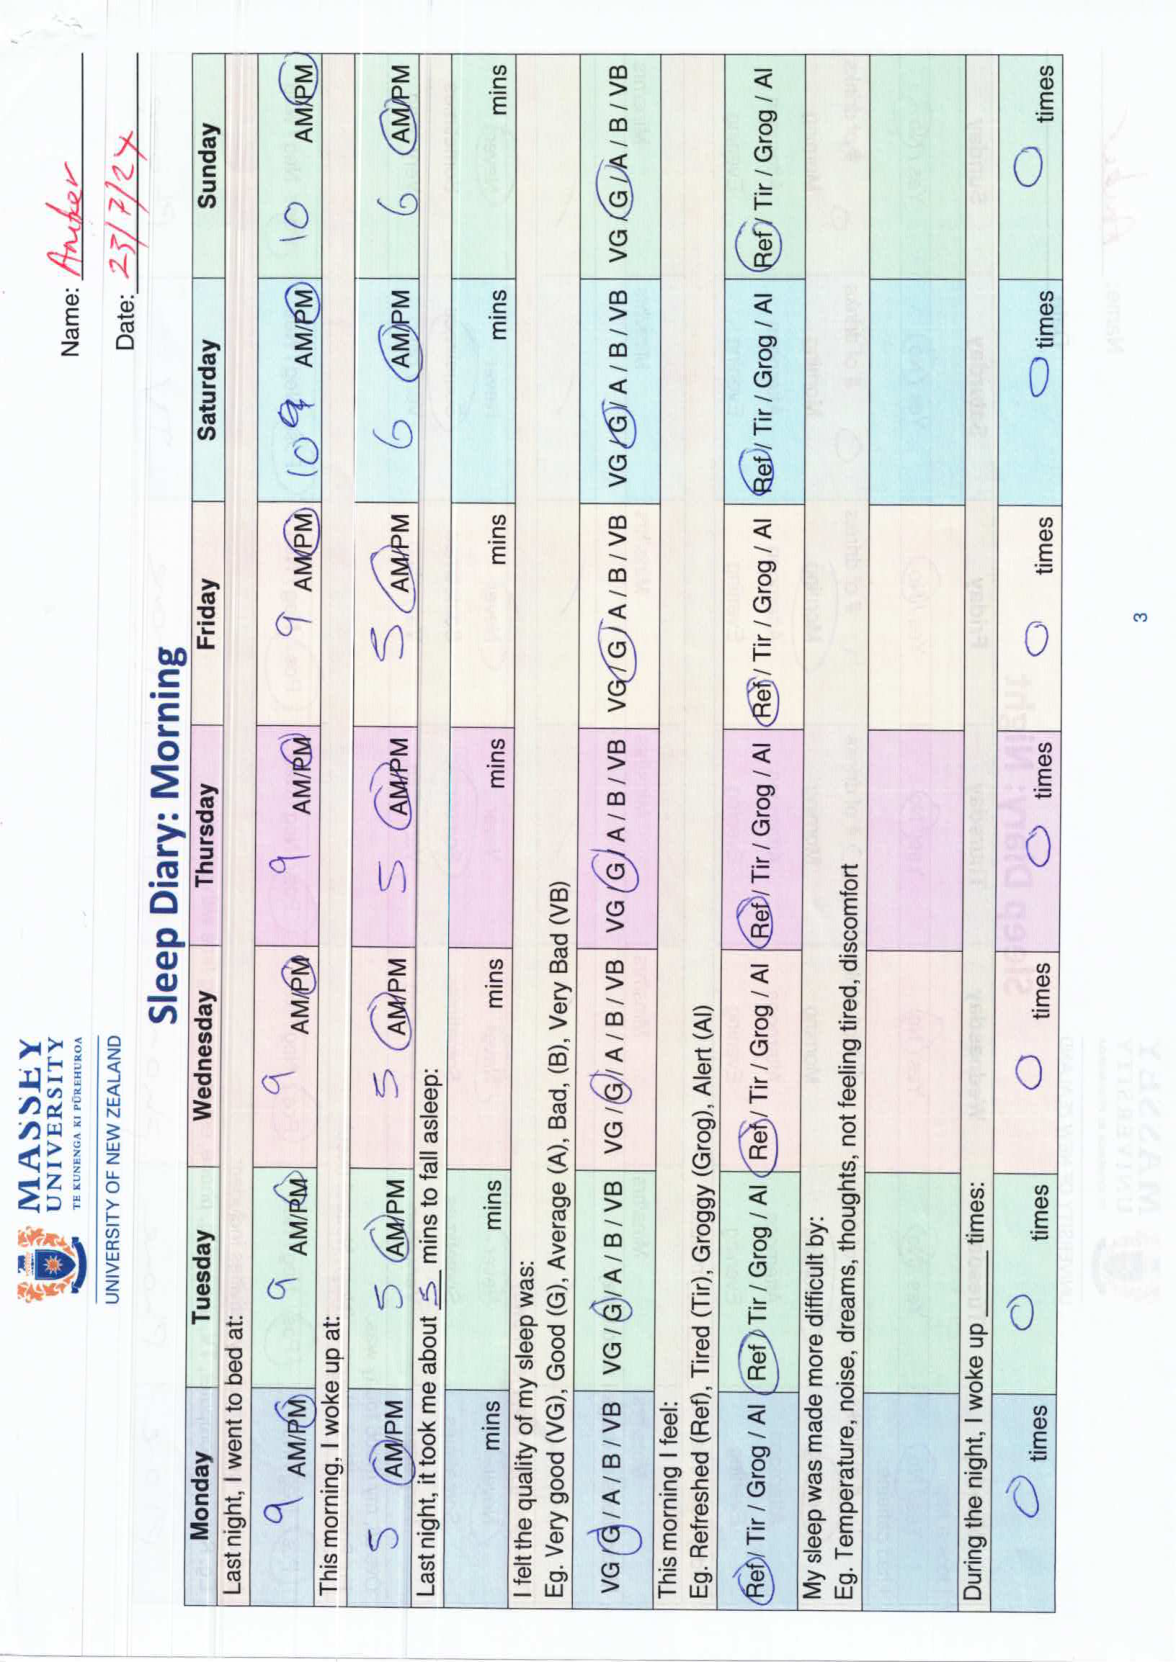 MASSEY
UNIVERSITY
TE KUNENGA KI PŪREHUROA
UNIVERSITY OF NEW ZEALAND
Name:
Date: 23/7/24
Sleep Diary: Morning
Monday Tuesday Wednesday Thursday Friday Saturday Sunday
Last night, I went to bed at:
9 AM/PM 9 AM/PM 9 AM/PM 9 AM/PM 9 AM/PM 10 9 AM/PM 10 AM/PM
This morning, I woke up at:
5 AM/PM 5 AM/PM 5 AM/PM 5 AM/PM 5 AM/PM 6 AM/PM 6 AM/PM
Last night, it took me about 5 mins to fall asleep:
mins mins mins mins mins mins mins
I felt the quality of my sleep was:
Eg. Very good (VG), Good (G), Average (A), Bad, (B), Very Bad (VB)
VG / G / A / B / VB VG / G / A / B / VB VG / G / A / B / VB VG / G / A / B / VB VG / G / A / B / VB VG / G / A / B / VB VG / G / A / B / VB
This morning I feel:
Eg. Refreshed (Ref), Tired (Tir), Groggy (Grog), Alert (Al)
Ref / Tir / Grog / Al Ref / Tir / Grog / Al Ref / Tir / Grog / Al Ref / Tir / Grog / Al Ref / Tir / Grog / Al Ref / Tir / Grog / Al Ref / Tir / Grog / Al
My sleep was made more difficult by:
Eg. Temperature, noise, dreams, thoughts, not feeling tired, discomfort
During the night, I woke up ____ times:
0 times 0 times 0 times 0 times 0 times 0 times 0 times
3